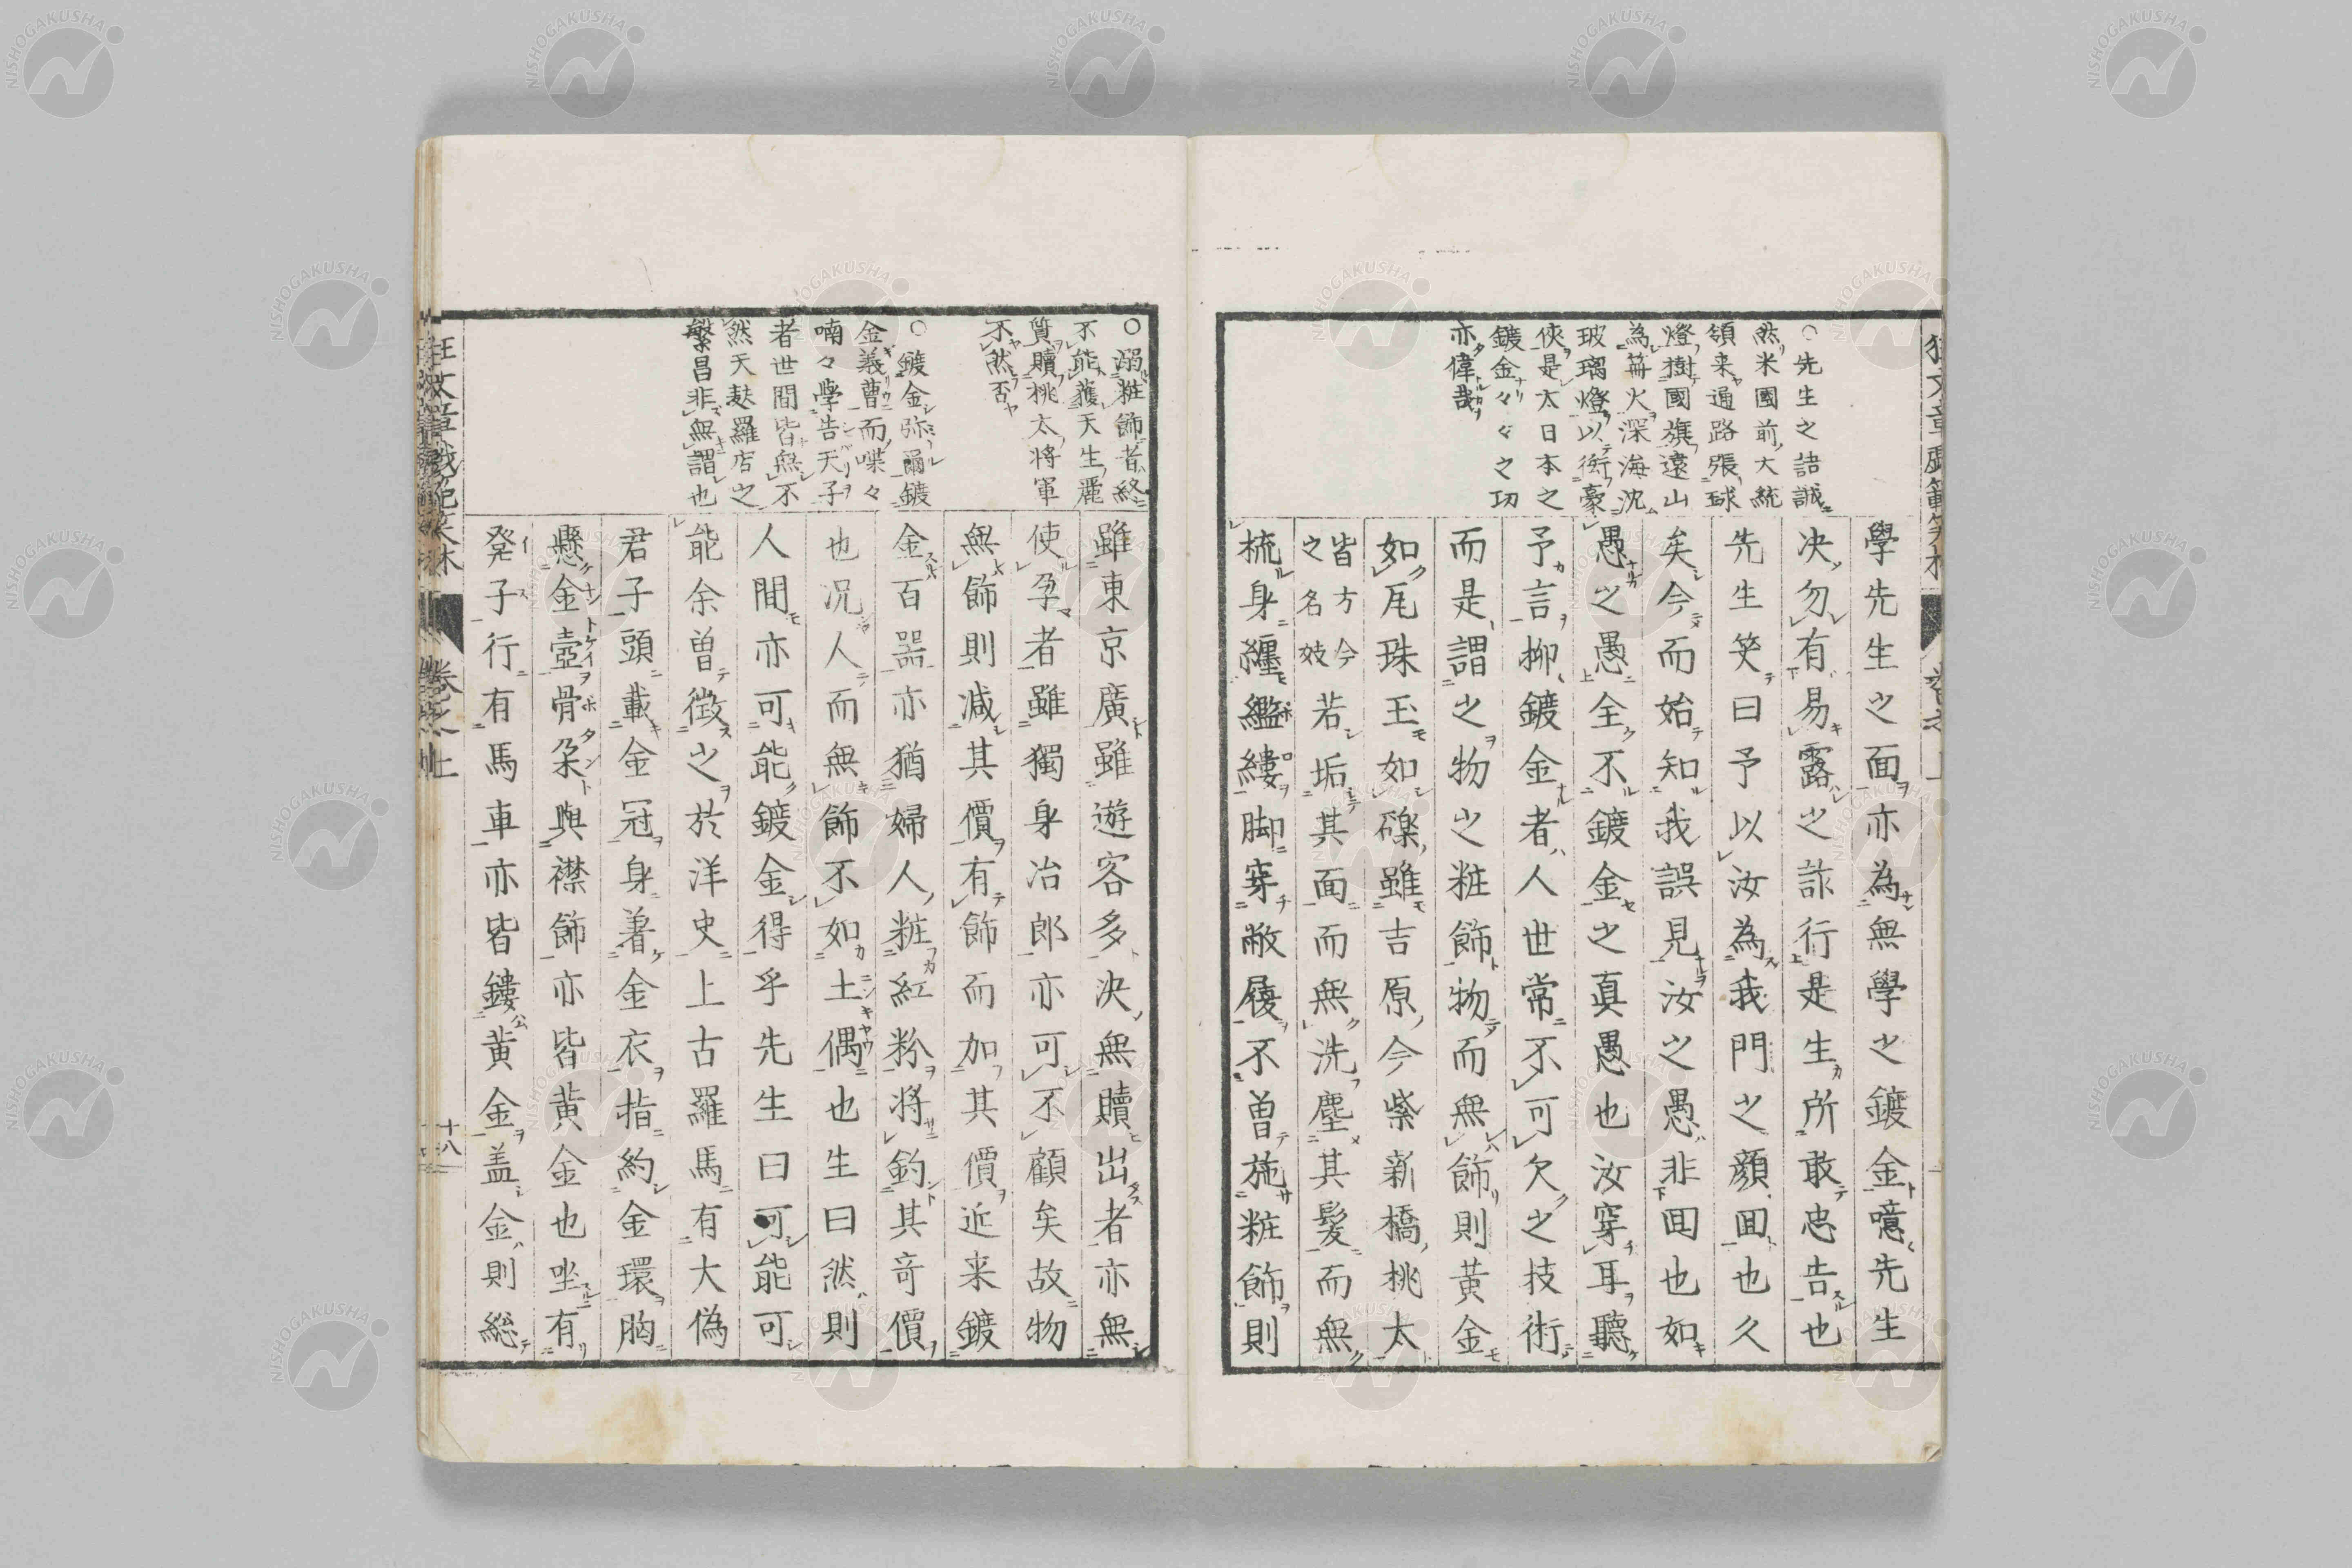 ○先生之詰誠
然米國前大統
領来通路張球
燈樹國旗遠山
為篝火深海沈
玻璃燈以衒豪
侠是大日本之
鍍金々々之功
亦偉哉
學先生之面亦為無學之鍍金噫先生
决勿有易露之詐行是生所敢忠告也
先生笑曰予以汝為我門之顔囬也久
矣今而始知我誤見汝之愚非囬也如
愚之愚全不鍍金之真愚也汝穿耳聽
予言抑鍍金者人世常不可欠之技術
而是謂之物之粧飾物而無飾則黄金
如尾珠玉如礫雖吉原今紫新橋桃太
皆方今之名妓若垢其面而無洗塵其髪而無
梳身纏繿縷脚穿敝履不曽施粧飾則
○溺粧飾者終
不能獲天生麗
質贖桃太将軍
不然否
○鍍金弥爾鍍
金義曹而喋々
喃々學告天子
者世間皆無不
然天麸羅店之
繁昌非無謂也
雖東京廣雖遊客多决無贖出者亦無
使孕者雖獨身冶郎亦可不顧矣故物
無飾則减其價有飾而加其價近来鍍
金百器亦猶婦人粧紅粉将釣其竒價
也况人而無飾不如土偶也生曰然則
人間亦可能鍍金得乎先生曰可能可
能余曽徴之於洋史上古羅馬有大偽
君子頭載金冠身著金衣指約金環胸
懸金壺骨朶與襟飾亦皆黄金也坐有
発子行有馬車亦皆鏤黄金盖金則総
卷之上
十八
NISHOGAKUSHA